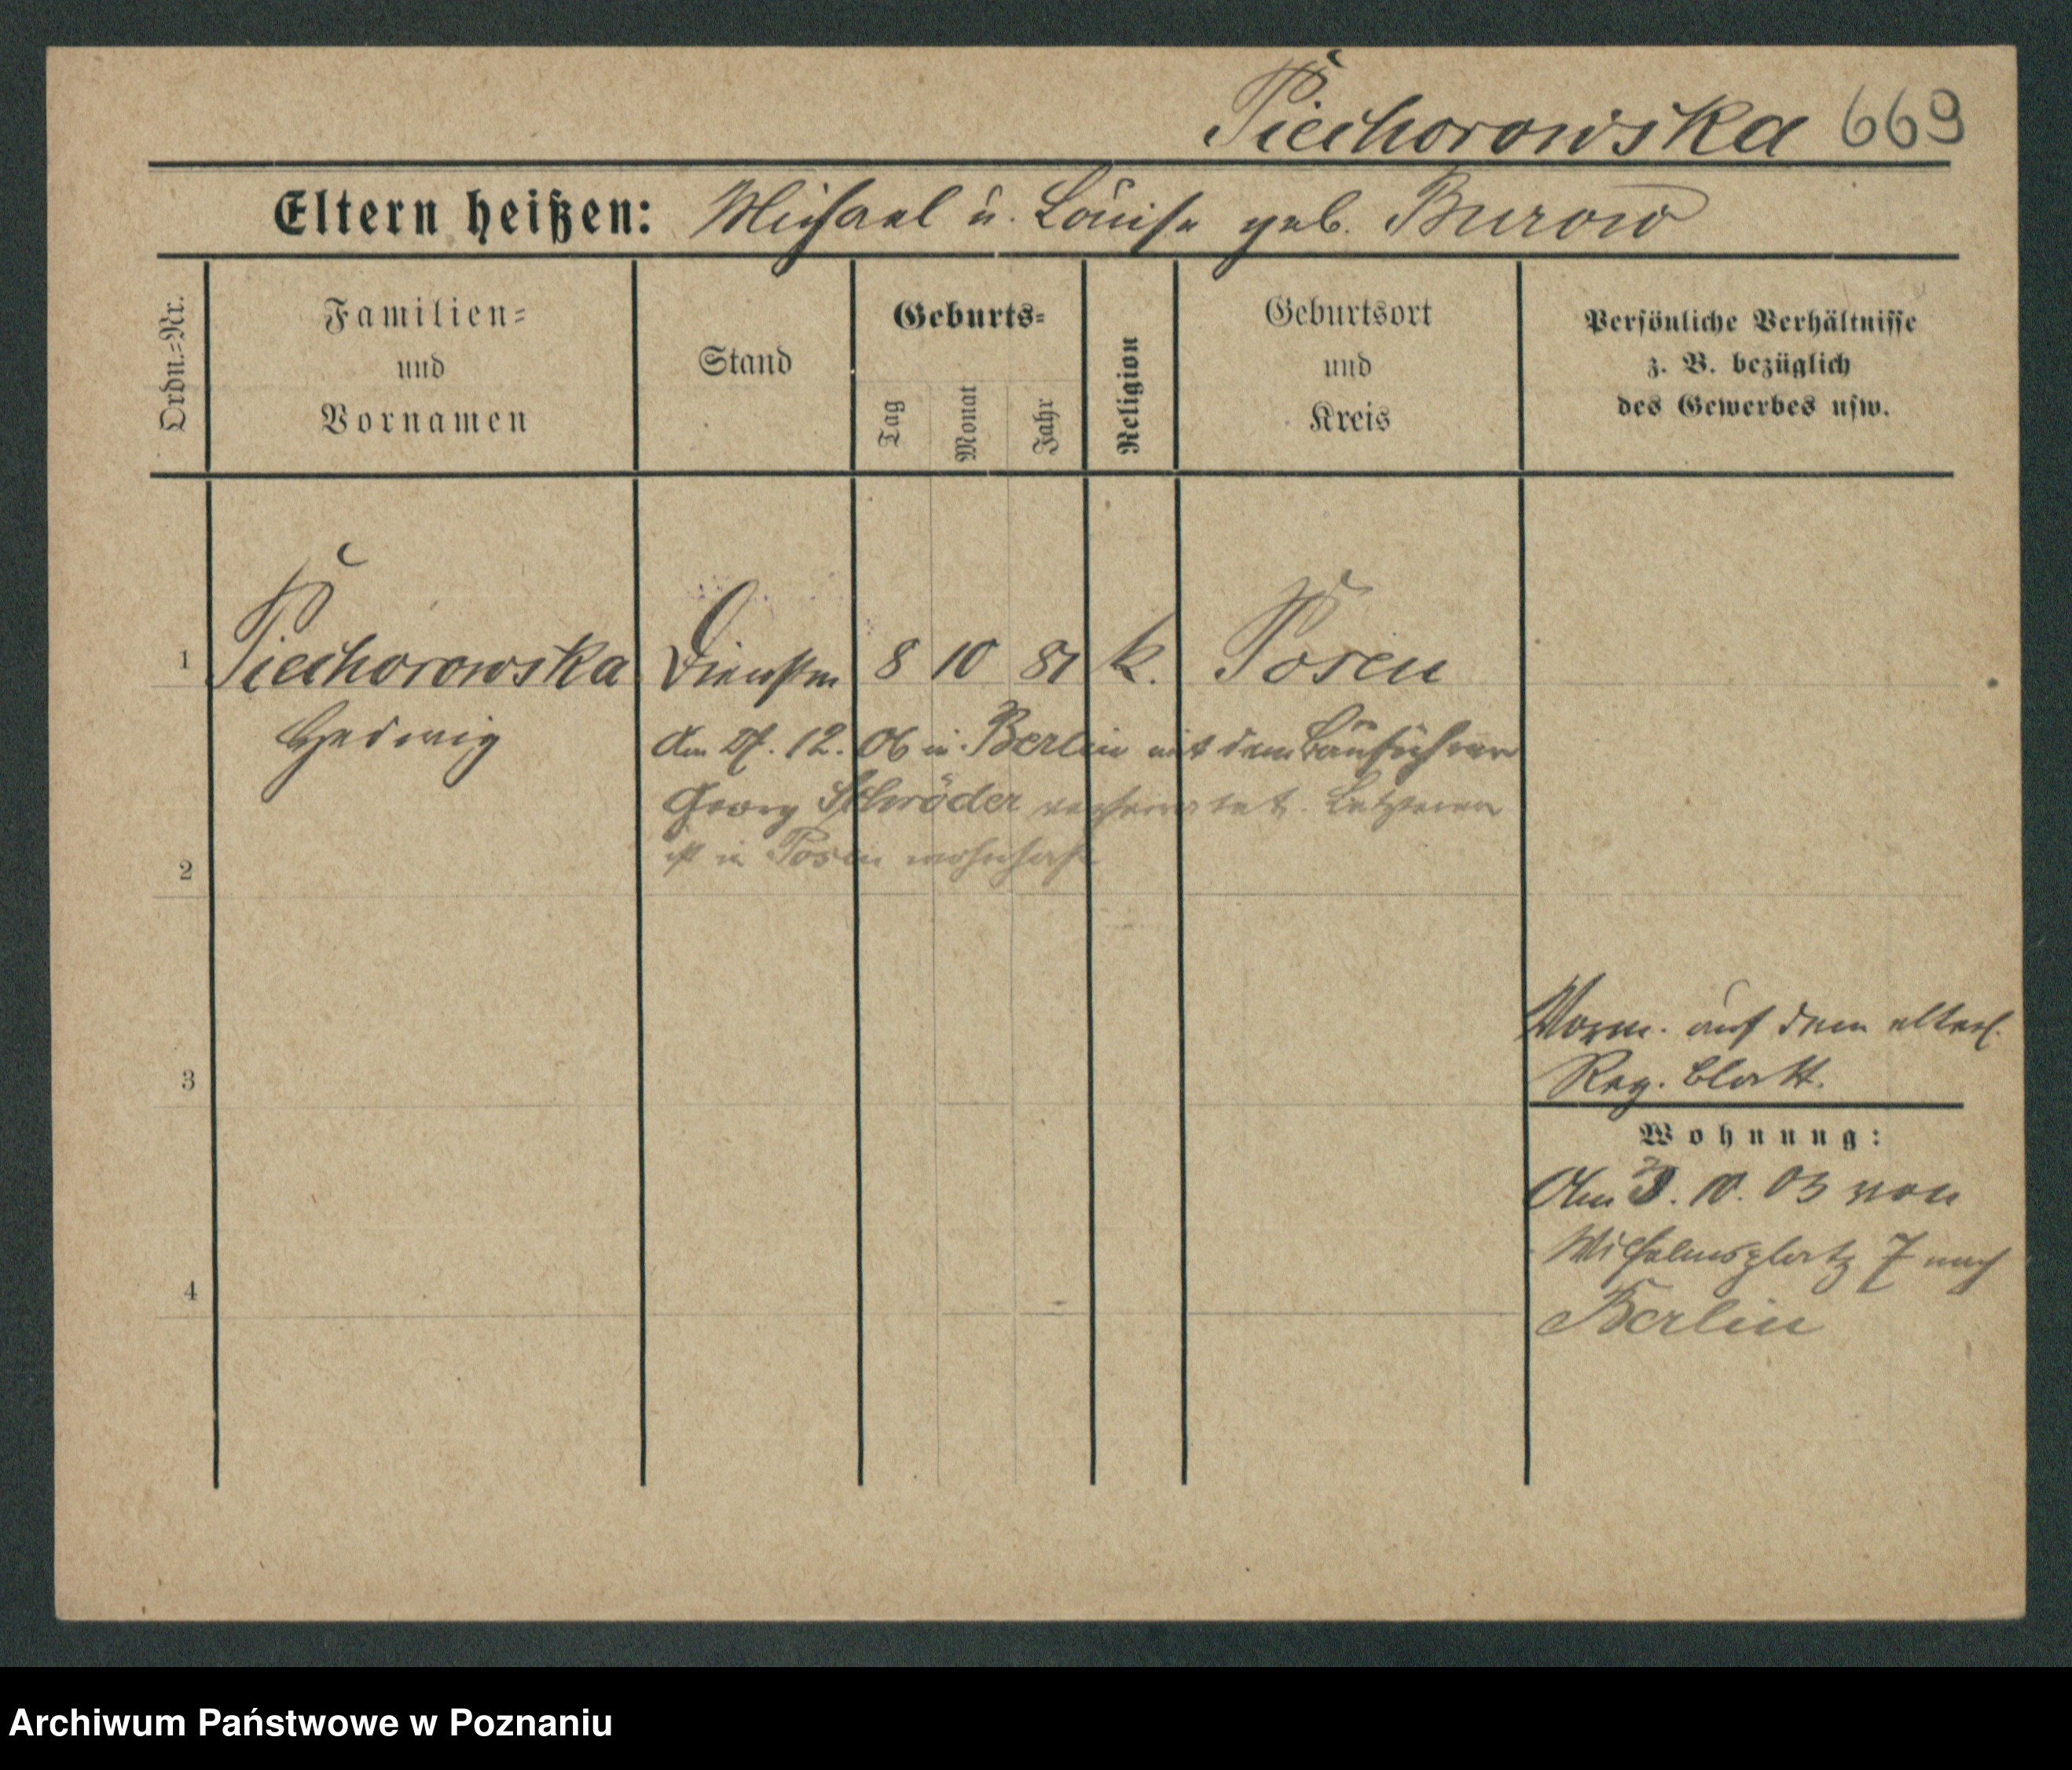 Piechorowska 669
Eltern heißen: Michael u. Louise geb. Burow
Ordn.=Nr.
Familien=
und
Vornamen
Stand
Geburts=
Tag
Monat
Jahr
Religion
Geburtsort
und
Kreis
Persönliche Verhältnisse
z. B. bezüglich
des Gewerbes usw.
1 Piechorowska Dienstm 8 10 81 k. Posen
Hedwig
Am 27. 12. 06 in Berlin mit dem Bauführer
Georg Schröder verheiratet. Letzterer
ist in Posen wohnhaft
2
Verm. auf dem elterl.
Reg. Blatt.
3
Wohnung:
Am 3. 10. 03 von
Wilhelmsplatz 7 nach
Berlin
4
Archiwum Państwowe w Poznaniu